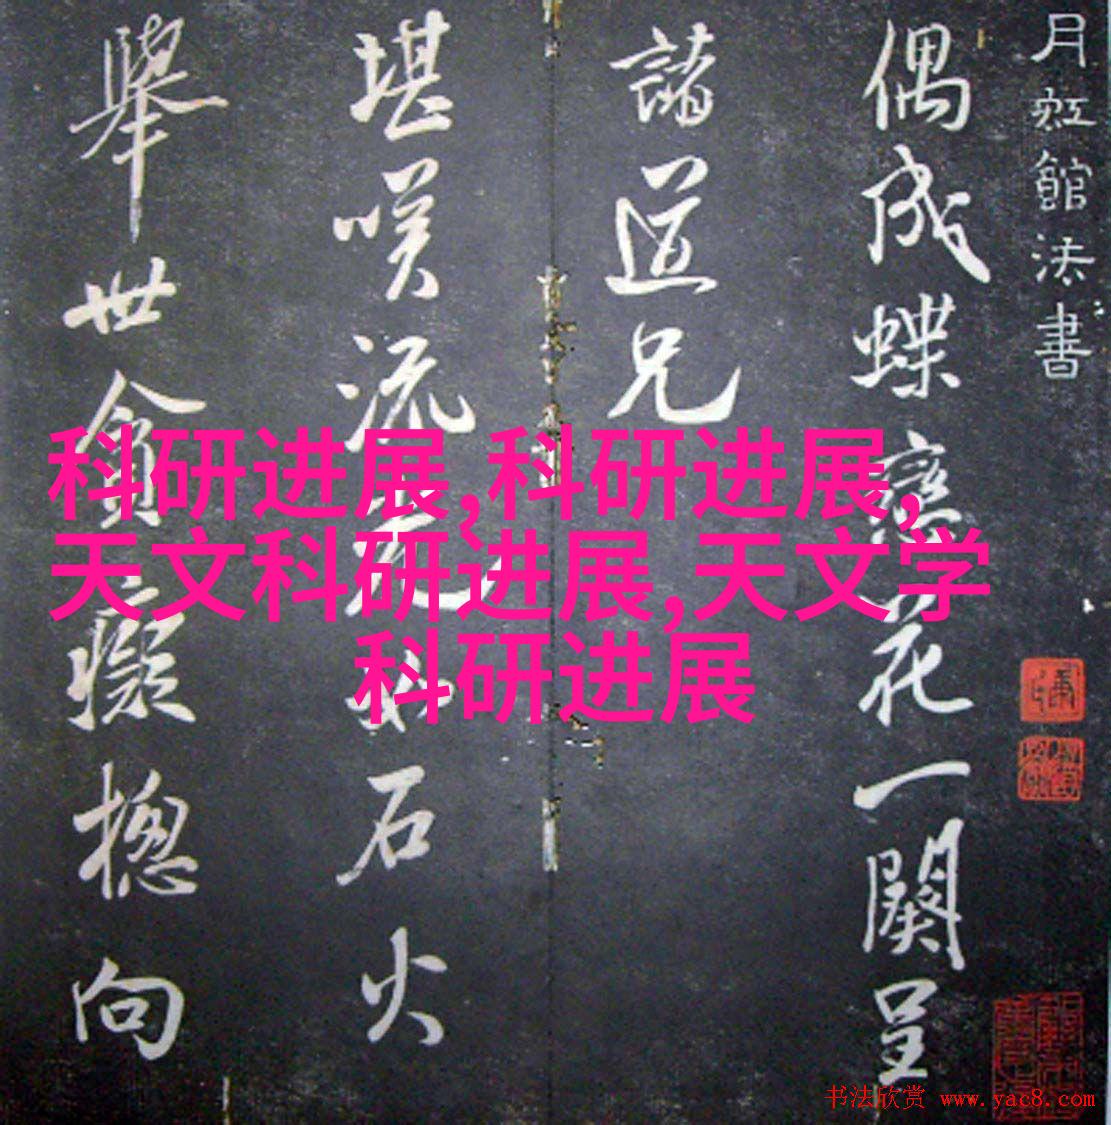 月虹館法書
偶成蝶戀花一闋呈
諸道兄
堪嘆流光如石火
舉世貪癡摠向
科研进展,科研进展,
天文科研进展,天文学
科研进展
书法欣赏 www.yac8.com